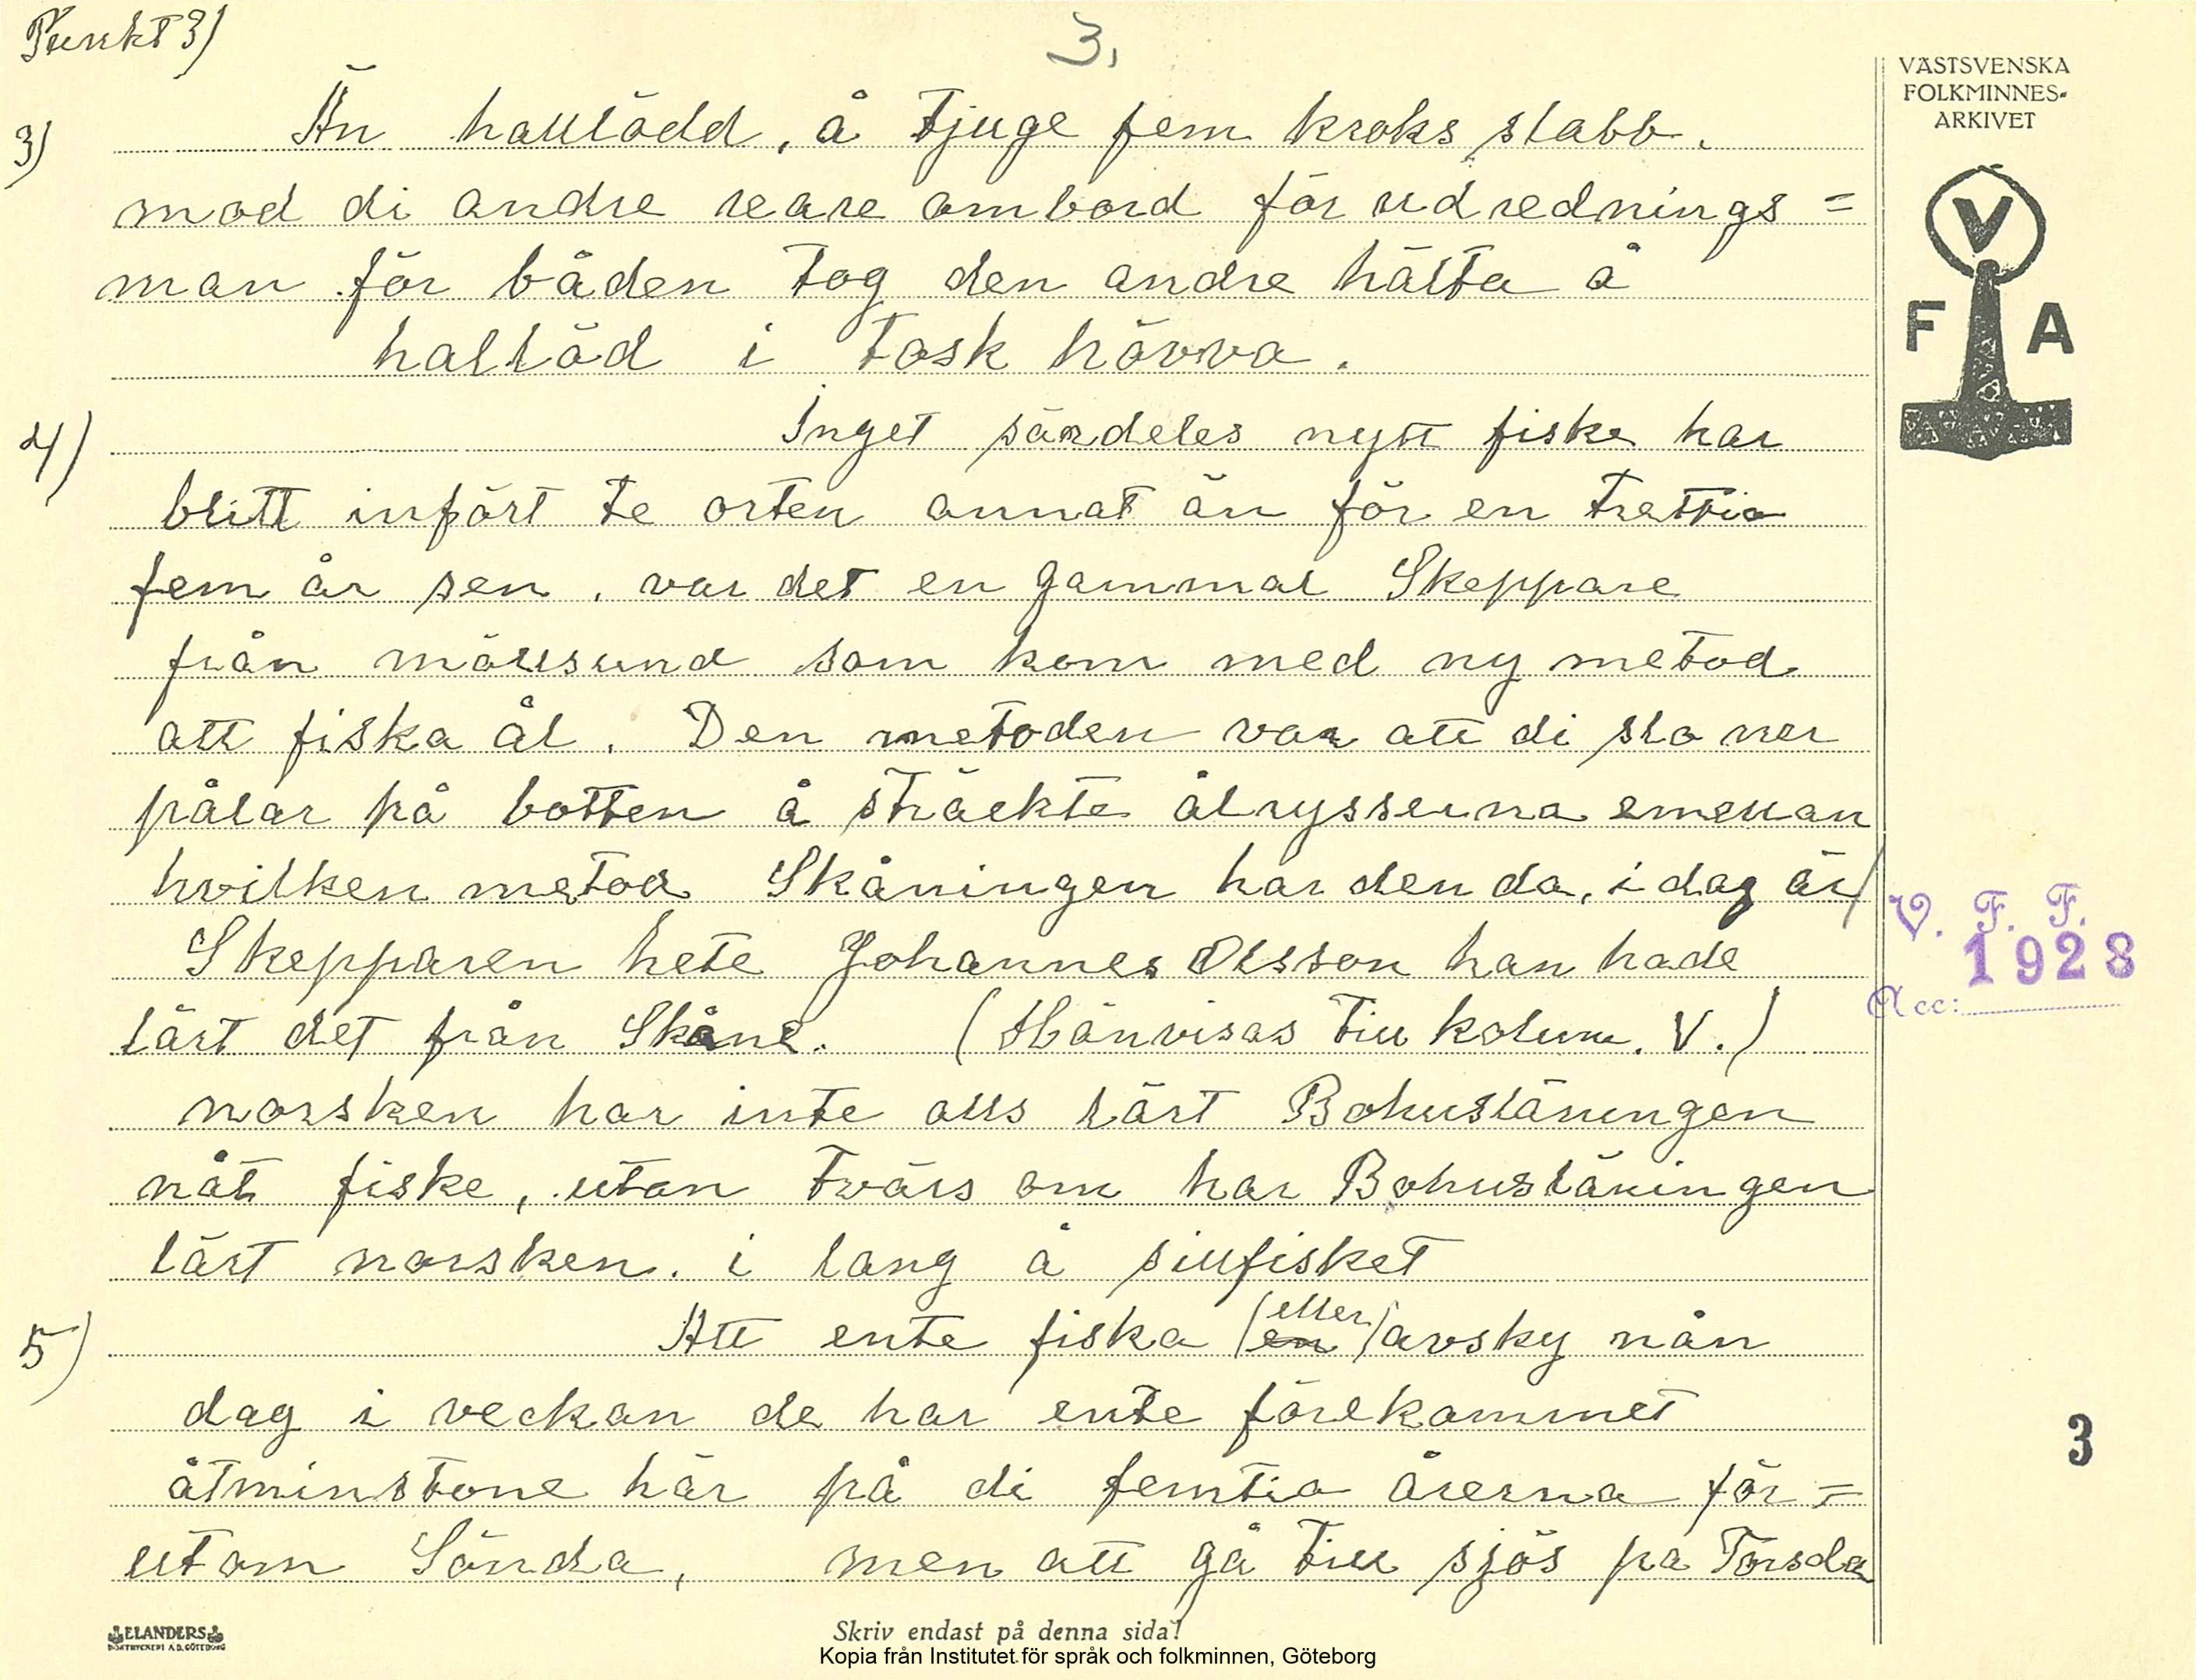 Punkt 3)
3.
VÄSTSVENSKA
FOLKMINNES-
ARKIVET
3) Än hallödd, å tjuge fem kroks stabb.
mod di andre reare ombord för udrednings=
man för båden tog den andre hälta å
hallöd i tosk hövva.
V
F A
4) Inget särdeles nytt fiske har
blitt infört te orten annat än för en trettio
fem år sen. var det en gammal Skeppare
från mällsund som kom med ny metod
att fiska ål. Den metoden var att di slo ner
pålar på botten å sträckte ålrysserna emellan
hvilken metod Skåningen har den da. i dag är/
Skepparen hete Johannes Olsson han hade
lärt det från Skåne. (Hänvisas till kolum. V.)
norsken har inte alls lärt Bohusläningen
nåt fiske, utan tvärs om har Bohusläningen
lärt norsken. i lang å sillfisket
V. F. F.
1928
Acc:
5) Att ente fiska (en eller) avsky nån
dag i veckan de har ente förekommet
åtminstone här på di femtio årerna för=
utom Sönda, men att gå till sjös pa Torsda
3
ELANDERS
BOKTRYCKERI A.B. GÖTEBORG
Skriv endast på denna sida!
Kopia från Institutet för språk och folkminnen, Göteborg